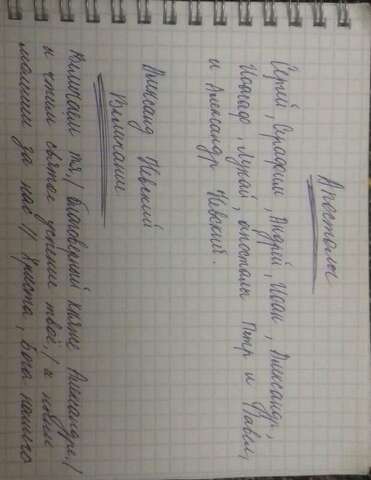 Апостолы
Сергий, Серафим, Андрей, Иоан, Александр,
Иоасаф, Лукай, апостолы Петр и Павел,
и Александр Невский.
Александ Невский
Величании
Величаем тя,/ благоверный княже Александре,/
и чтим святое успение твоё,/ и
молиши за нас // Христа, Бога нашего